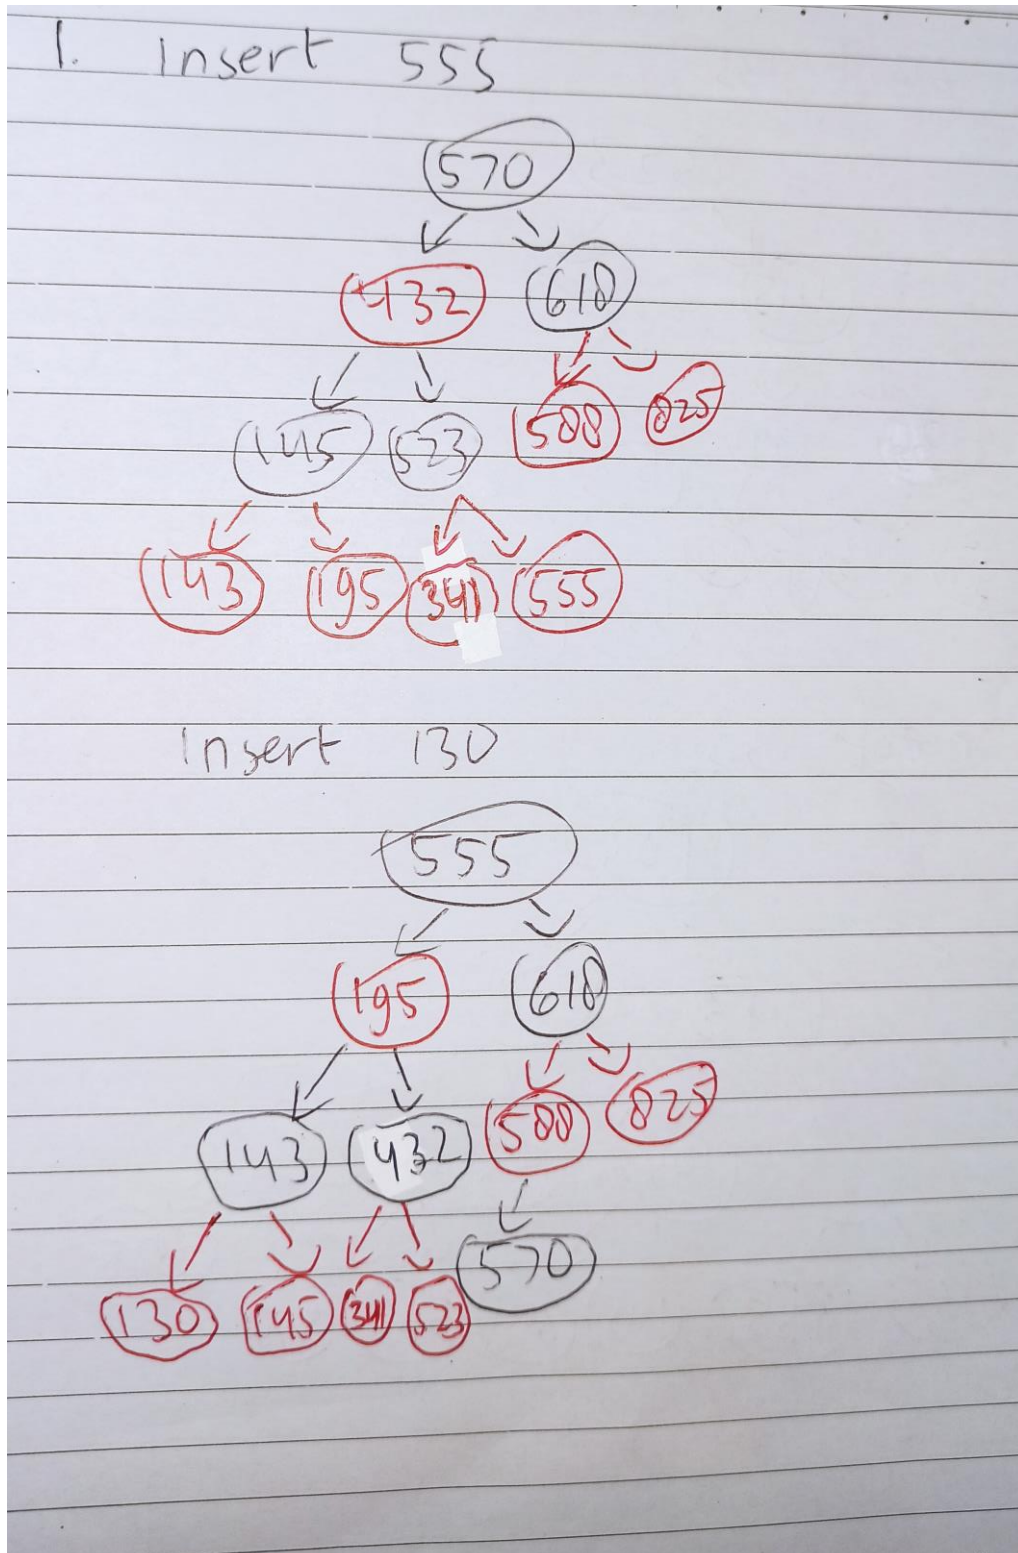 1. Insert 555
570
432 618
145 523 588 825
143 195 341 555
Insert 130
555
195 618
143 432 588 825
130 145 341 523 570